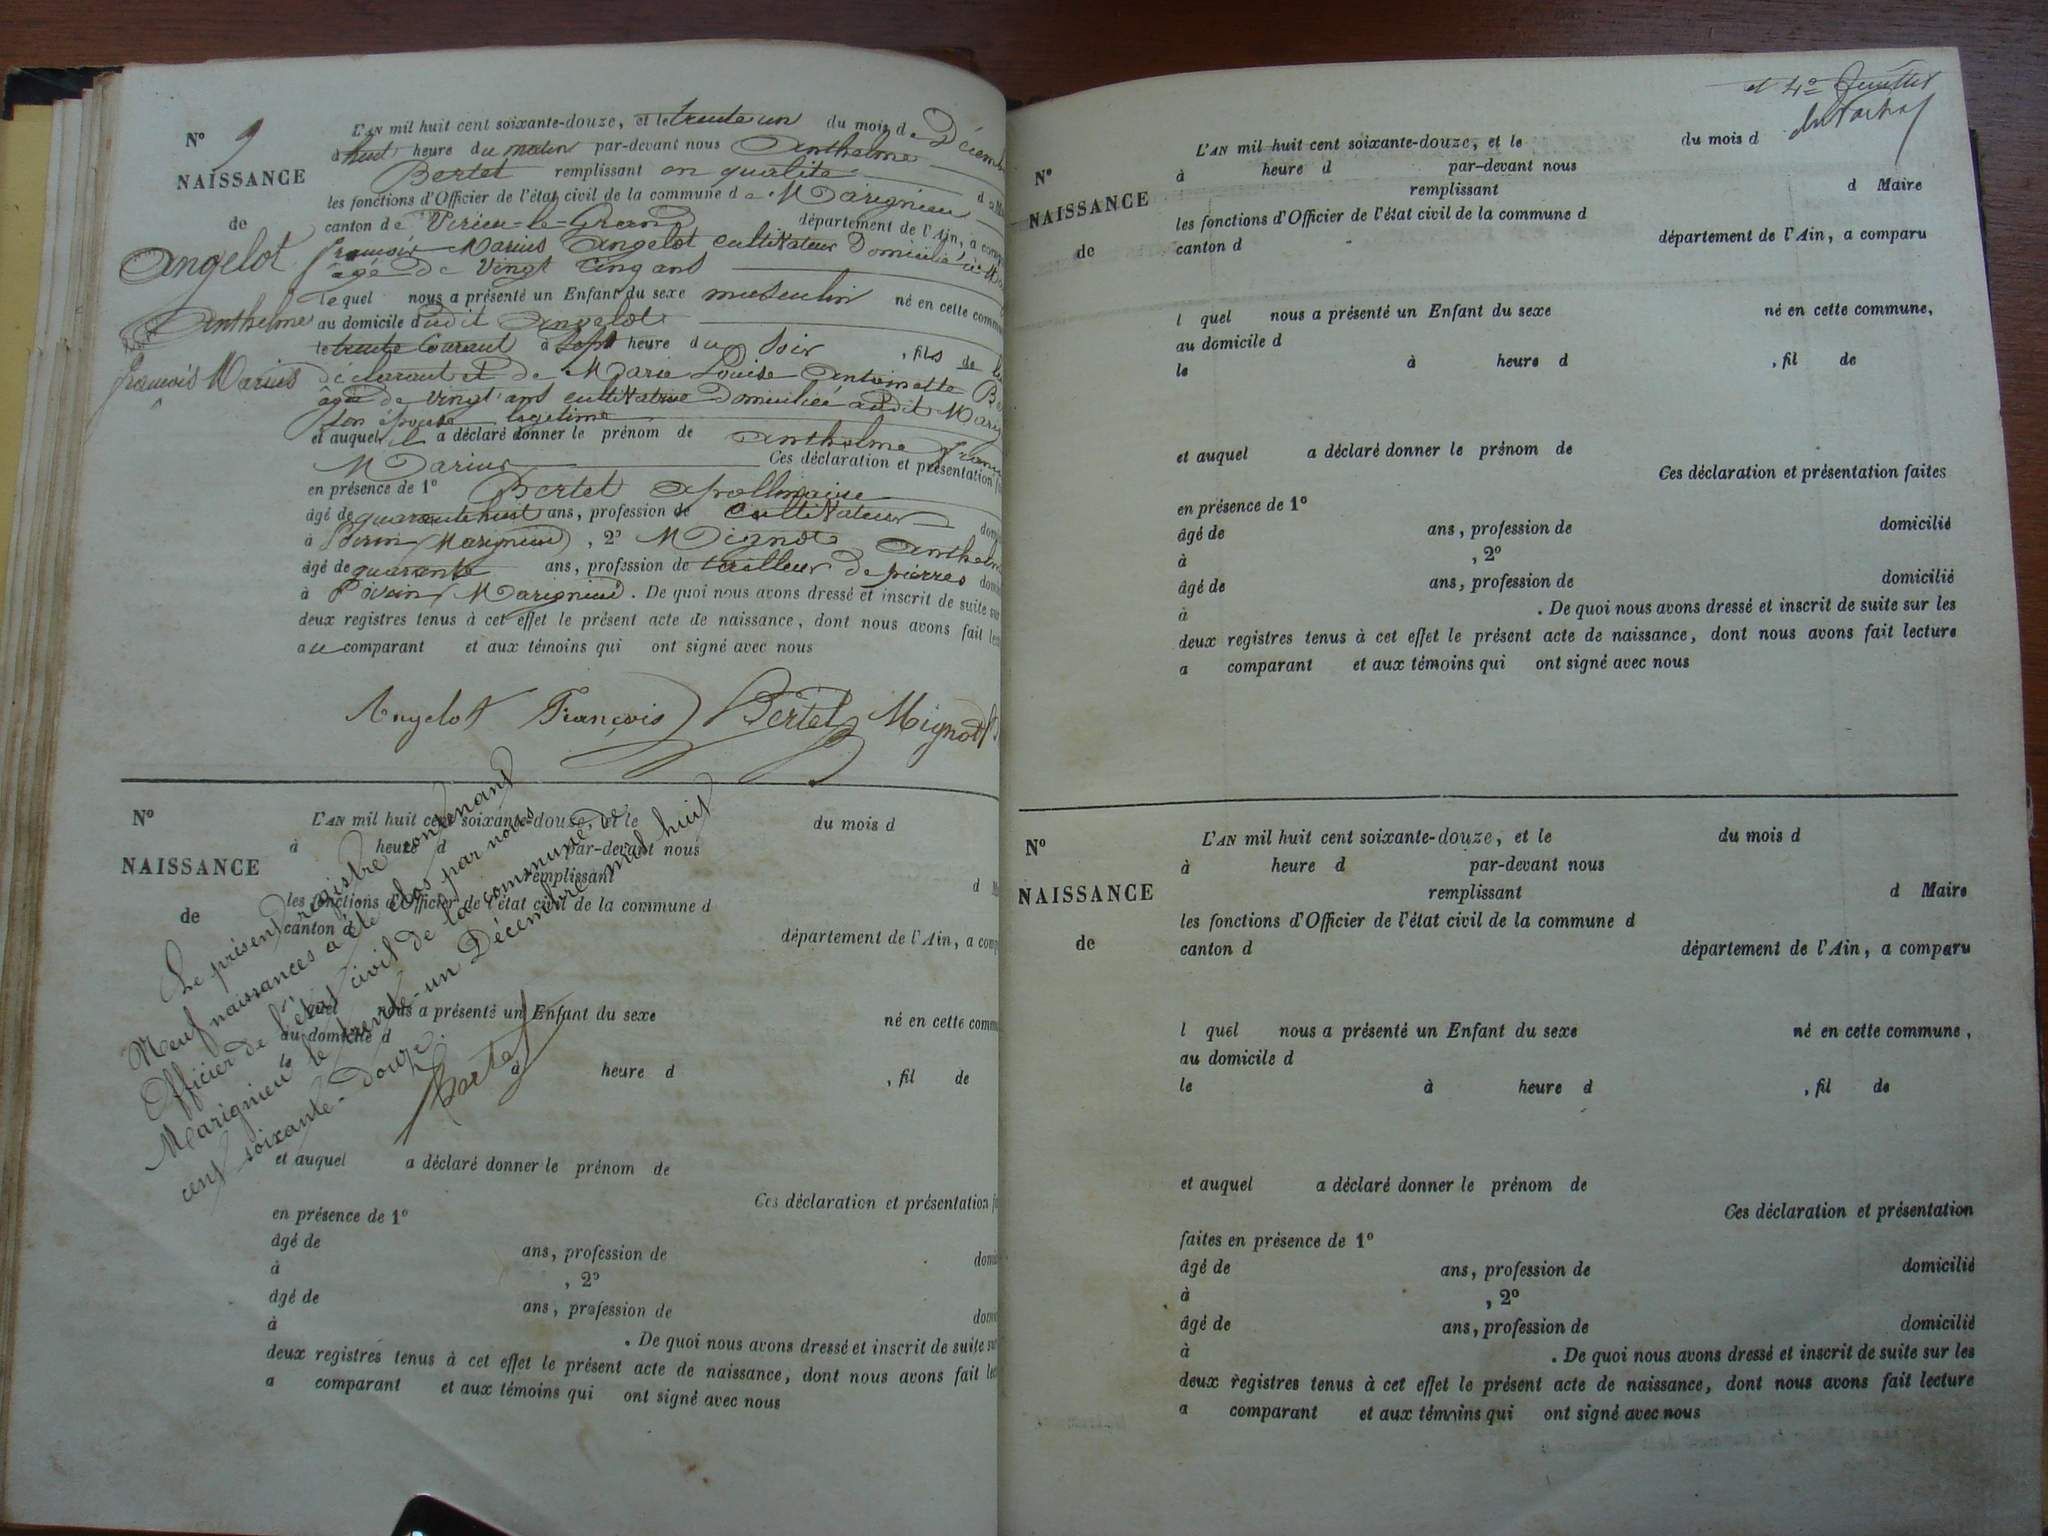 N° 9
NAISSANCE
de
Angelot
Anthelme
François Marius
L'AN mil huit cent soixante-douze, et le trente un du mois de Décemb
à huit heure du matin par-devant nous Anthelme
Bertet remplissant en qualité d
les fonctions d'Officier de l'état civil de la commune de Marignieu
canton de Virieu-le-Grand département de l'Ain, a comp
françois Marius Angelot cultivateur Domicilié à
âgé de vingt cinq ans
lequel nous a présenté un Enfant du sexe masculin né en cette comm
au domicile dudit Angelot
le trente Courant à Sept heure du Soir , fils de
déclarant et de Marie Louise Antoinette
âgée de vingt ans cultivatrice Domiciliée audit Marig
Son épouse legitime
et auquel il a déclaré donner le prénom de Anthelme franc
Marius Ces déclaration et présentation
en présence de 1° Bertet apollinaire
âgé de quarante huit ans, profession de cultivateur dom
à Marignieu , 2° Mignot Anthel
âgé de quarante ans, profession de tailleur de pierres dom
à Marignieu . De quoi nous avons dressé et inscrit de suite sur
deux registres tenus à cet effet le présent acte de naissance, dont nous avons fait lec
au comparant et aux témoins qui ont signé avec nous
Angelot François Bertet Mignot
N°
NAISSANCE
de
L'AN mil huit cent soixante-douze, et le du mois d
à heure d par-devant nous
remplissant d M
les fonctions d'Officier de l'état civil de la commune d
canton d
département de l'Ain, a comp
l quel nous a présenté un Enfant du sexe né en cette comm
au domicile d
le à heure d , fil de
et auquel a déclaré donner le prénom de
Ces déclaration et présentation
en présence de 1°
âgé de ans, profession de dom
à , 2°
âgé de ans, profession de dom
à . De quoi nous avons dressé et inscrit de suite
deux registres tenus à cet effet le présent acte de naissance, dont nous avons fait lec
a comparant et aux témoins qui ont signé avec nous
Le présent registre contenant
Neuf naissances a été clos par nous
Officier de l'état civil de la commune de
Marignieu le trente-un Décembre mil huit
cent soixante-douze.
Bertet
et 4e feuillet
N°
NAISSANCE
de
L'AN mil huit cent soixante-douze, et le du mois d
à heure d par-devant nous
remplissant d Maire
les fonctions d'Officier de l'état civil de la commune d
canton d département de l'Ain, a comparu
l quel nous a présenté un Enfant du sexe né en cette commune,
au domicile d
le à heure d , fil de
et auquel a déclaré donner le prénom de
Ces déclaration et présentation faites
en présence de 1°
âgé de ans, profession de domicilié
à , 2°
âgé de ans, profession de domicilié
à . De quoi nous avons dressé et inscrit de suite sur les
deux registres tenus à cet effet le présent acte de naissance, dont nous avons fait lecture
a comparant et aux témoins qui ont signé avec nous
N°
NAISSANCE
de
L'AN mil huit cent soixante-douze, et le du mois d
à heure d par-devant nous
remplissant d Maire
les fonctions d'Officier de l'état civil de la commune d
canton d département de l'Ain, a comparu
l quel nous a présenté un Enfant du sexe né en cette commune,
au domicile d
le à heure d , fil de
et auquel a déclaré donner le prénom de
Ces déclaration et présentation
faites en présence de 1°
âgé de ans, profession de domicilié
à , 2°
âgé de ans, profession de domicilié
à . De quoi nous avons dressé et inscrit de suite sur les
deux registres tenus à cet effet le présent acte de naissance, dont nous avons fait lecture
a comparant et aux témoins qui ont signé avec nous